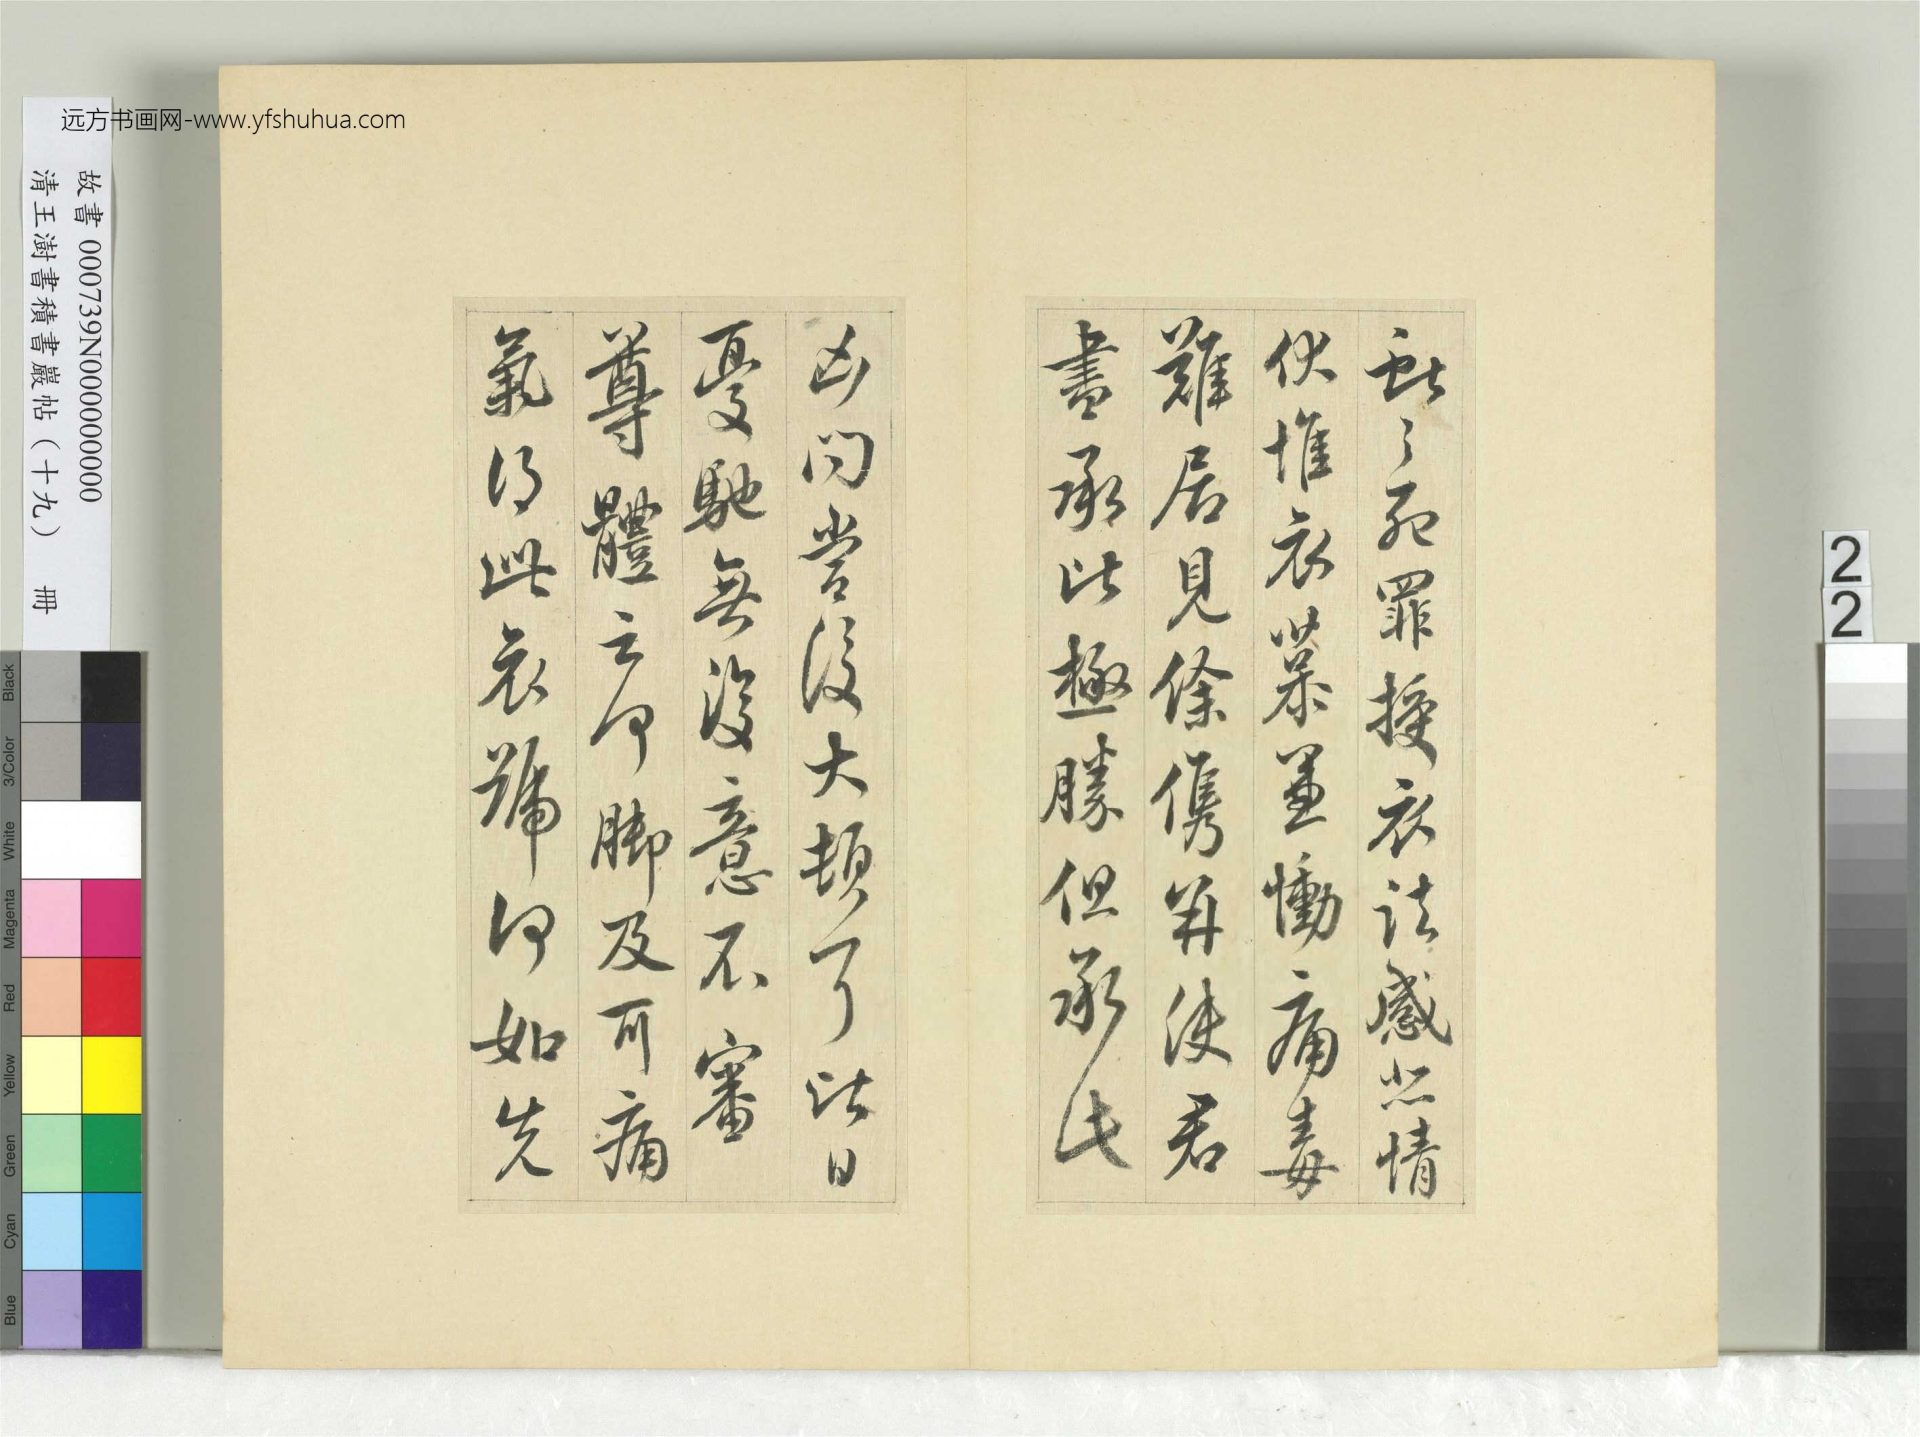 远方书画网-www.yfshuhua.com
故書 000739N000000000
清王澍書積書巖帖（十九） 冊
獻之死罪授衣諸感悲情
伏惟哀慕兼慟痛毒
難居見餘儁弁使君
書承比極勝但承此
凶問當復大頓耳比日
憂馳無復意不審
尊體云何腳及可痛
氣得此哀號何如先
22
Black
3/Color
White
Magenta
Red
Yellow
Green
Cyan
Blue